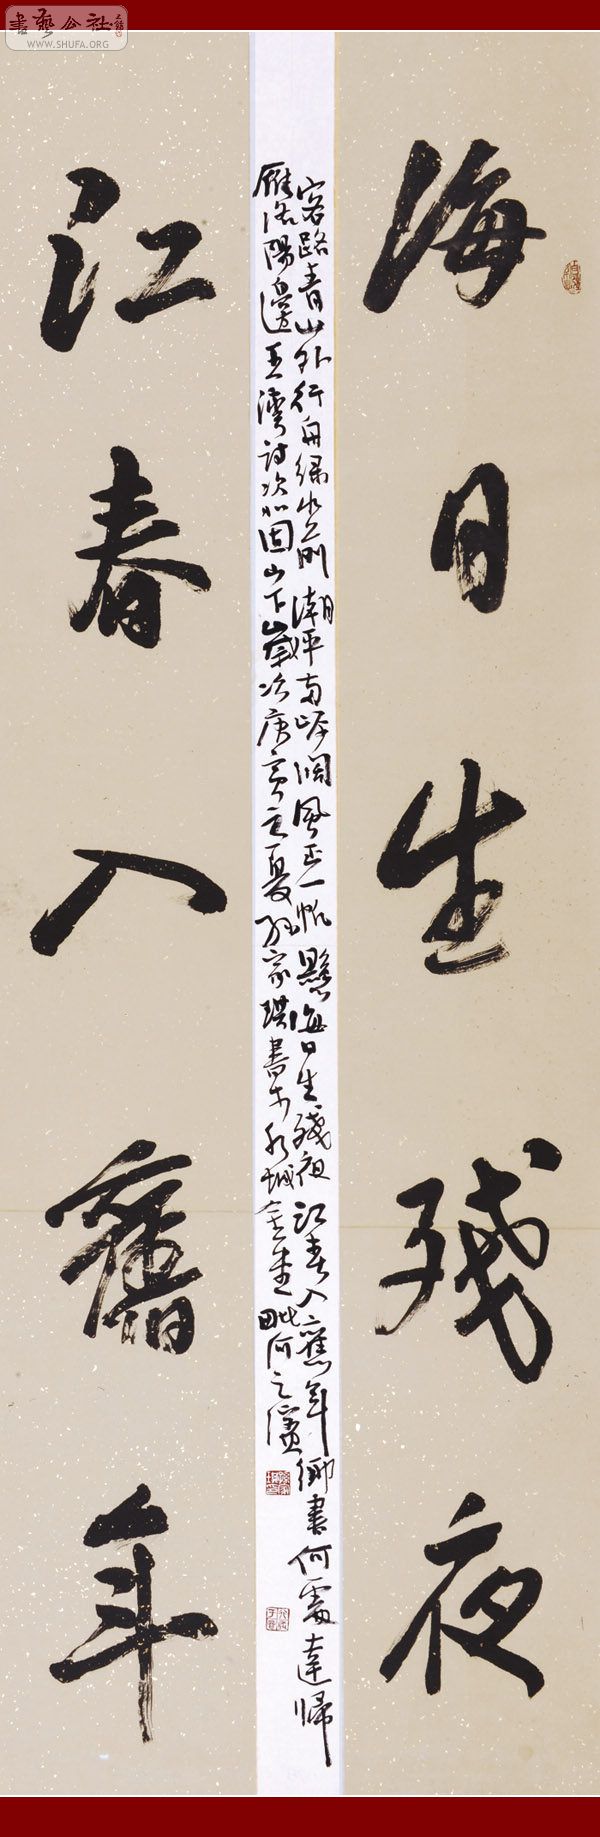 書藝公社
WWW.SHUFA.ORG
海日生殘夜
客路青山外行舟綠水前潮平兩岸闊風正一帆懸海日生殘夜江春入舊年鄉書何處達歸
雁洛陽邊王灣詩次北固山下歲次庚寅之夏家珙書於毗河之濱
江春入舊年